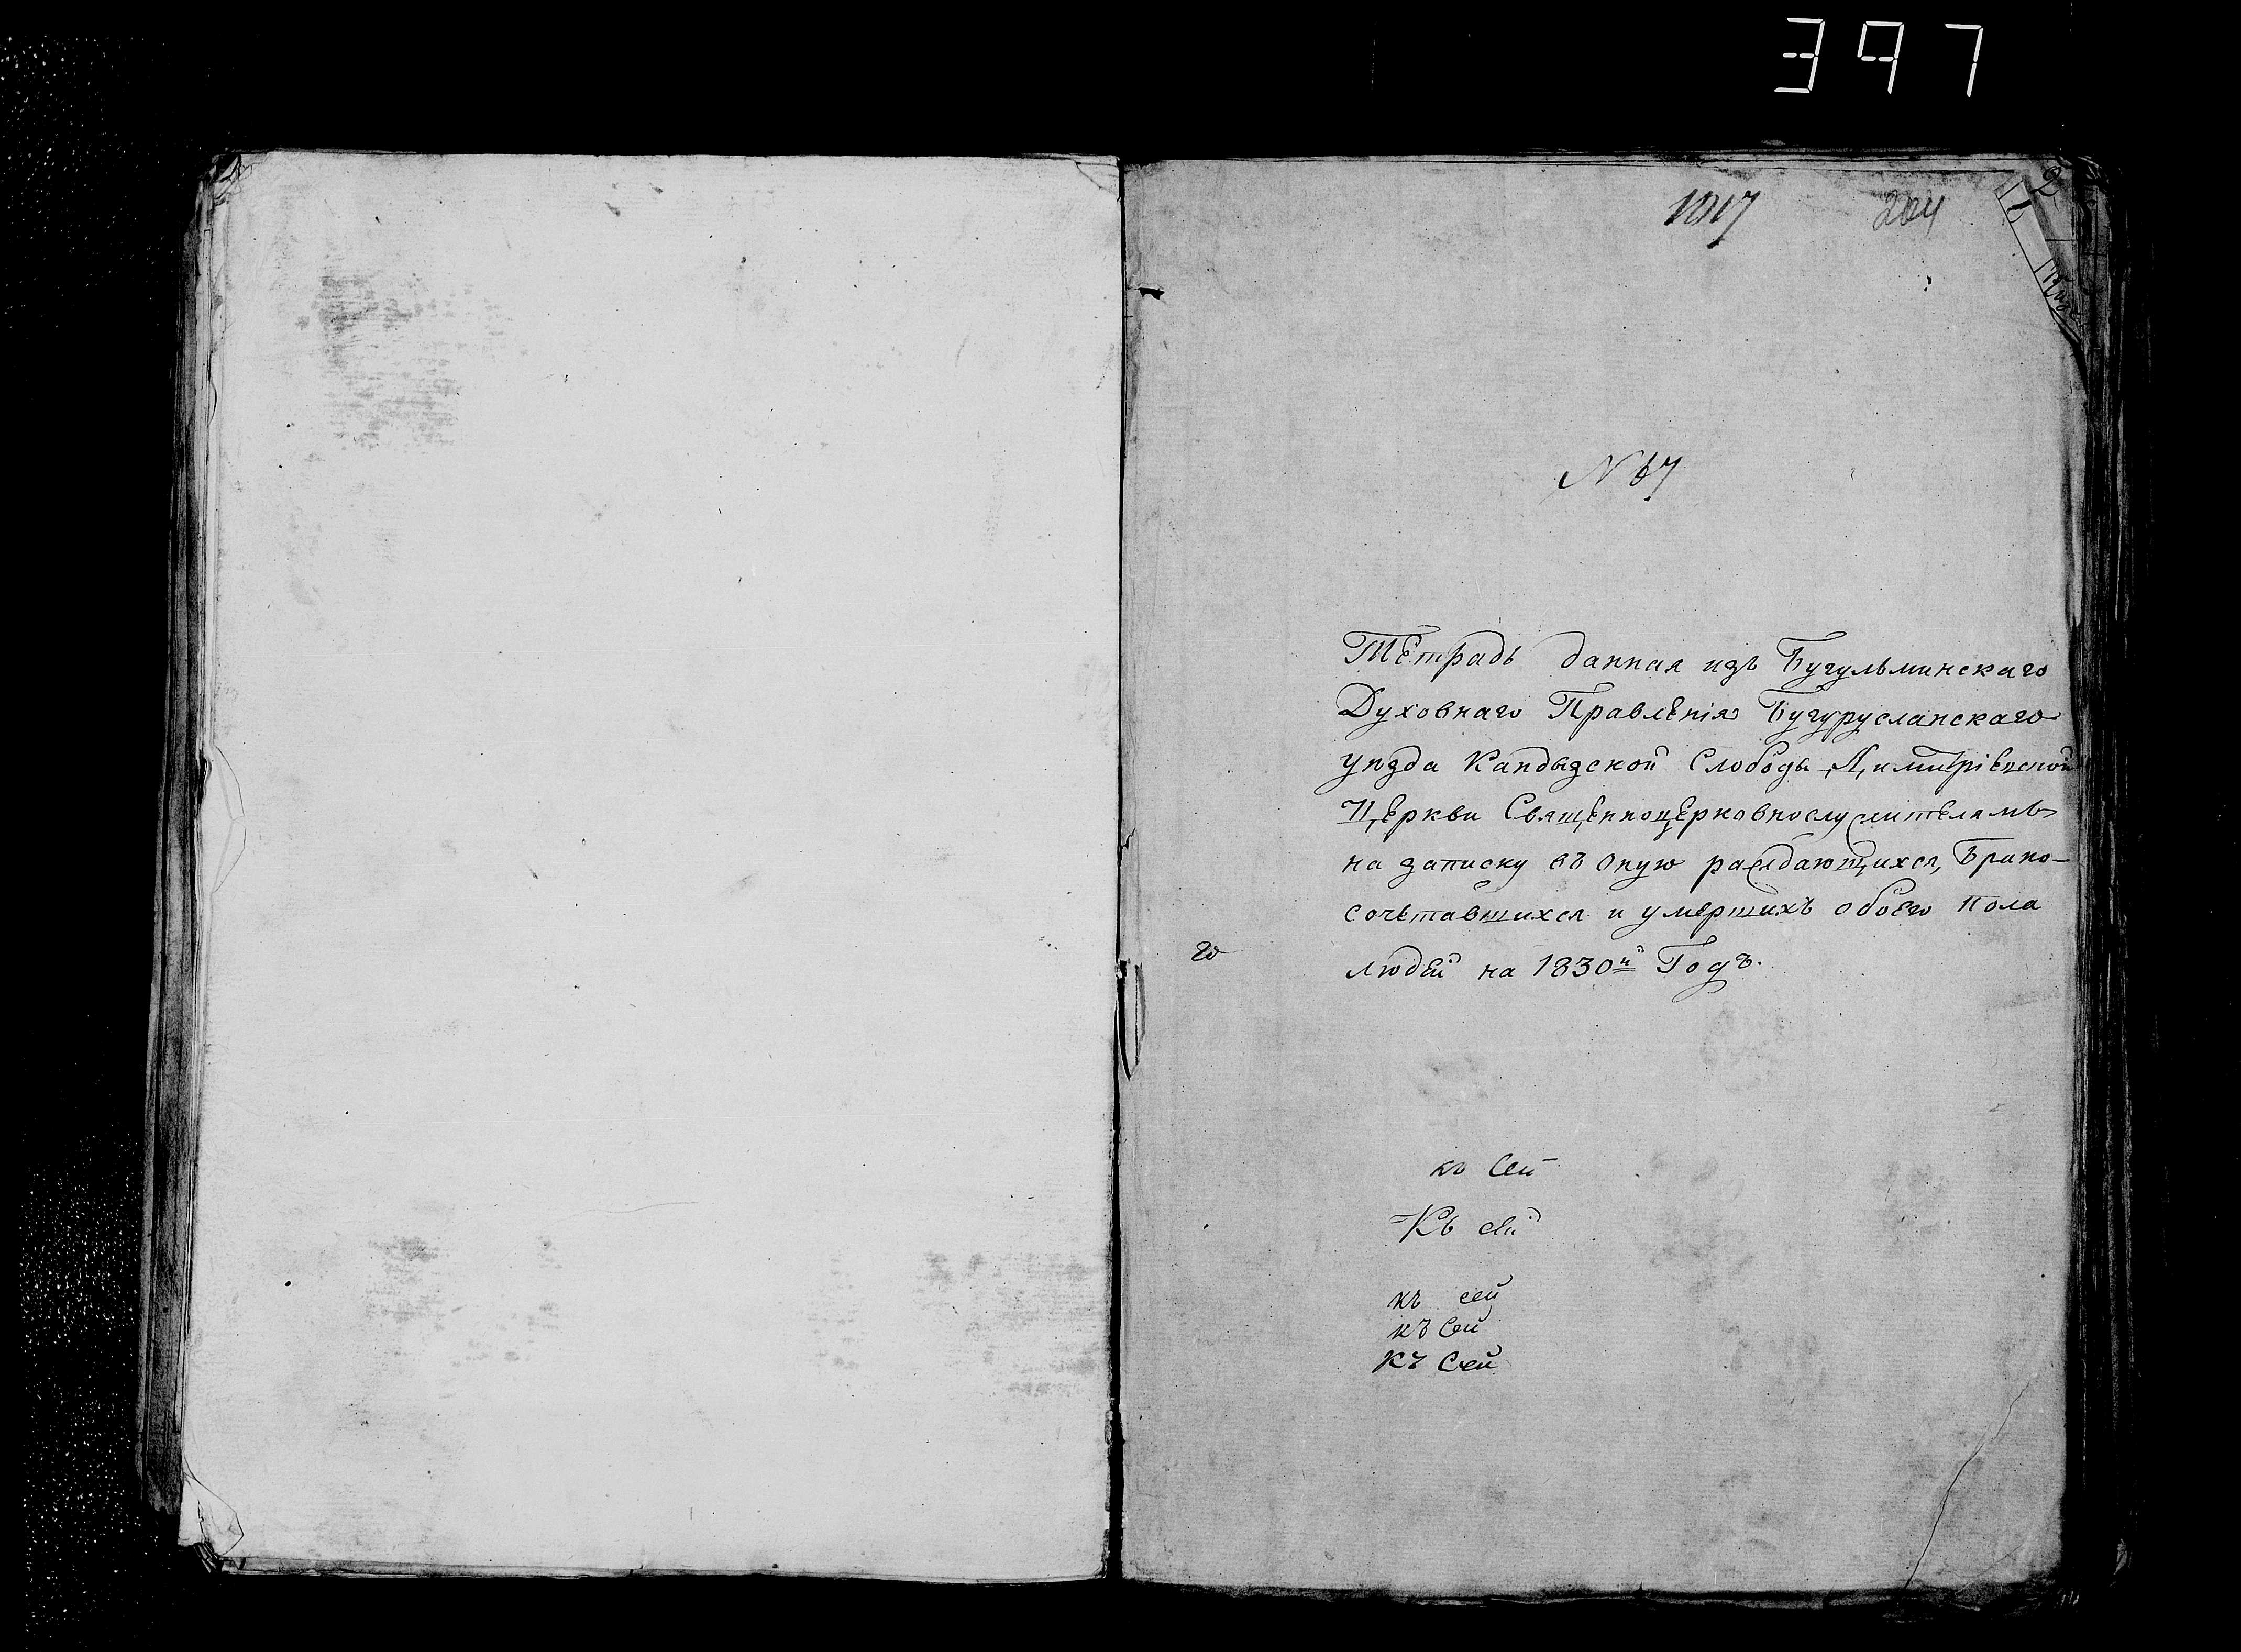 397
1017 204
2
№ 67
Тетрадь данная изъ Бугульминскаго
Духовнаго Правленія Бугурусланскаго
уѣзда Кандызской Слободы Димитріевской
Церкви Священноцерковнослужителямъ
на записку въ оную раждающихся, Брако-
сочетавшихся и умершихъ обоего пола
го
людей на 1830й Годъ.
къ Сей
Къ сей
къ сей
къ Сей
Къ Сей